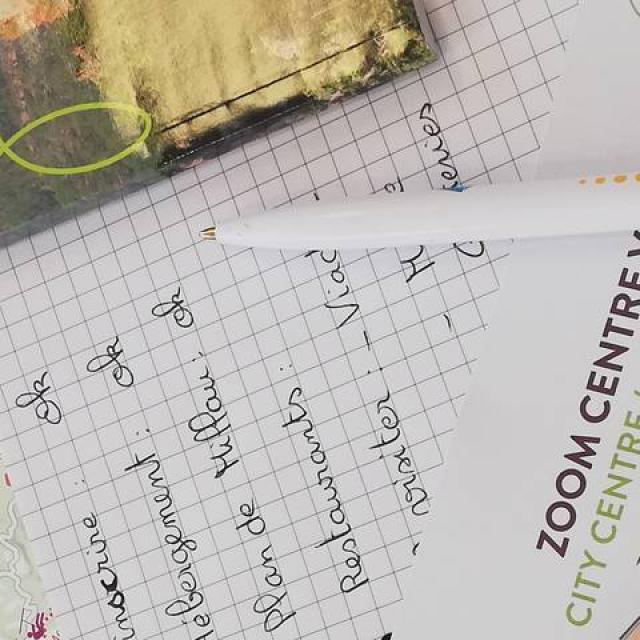 inscrire : ok
Hébergement : ok
Plan de Millau : ok
Restaurants :
visiter : - Viad
-
ZOOM CENTRE
CITY CENTRE